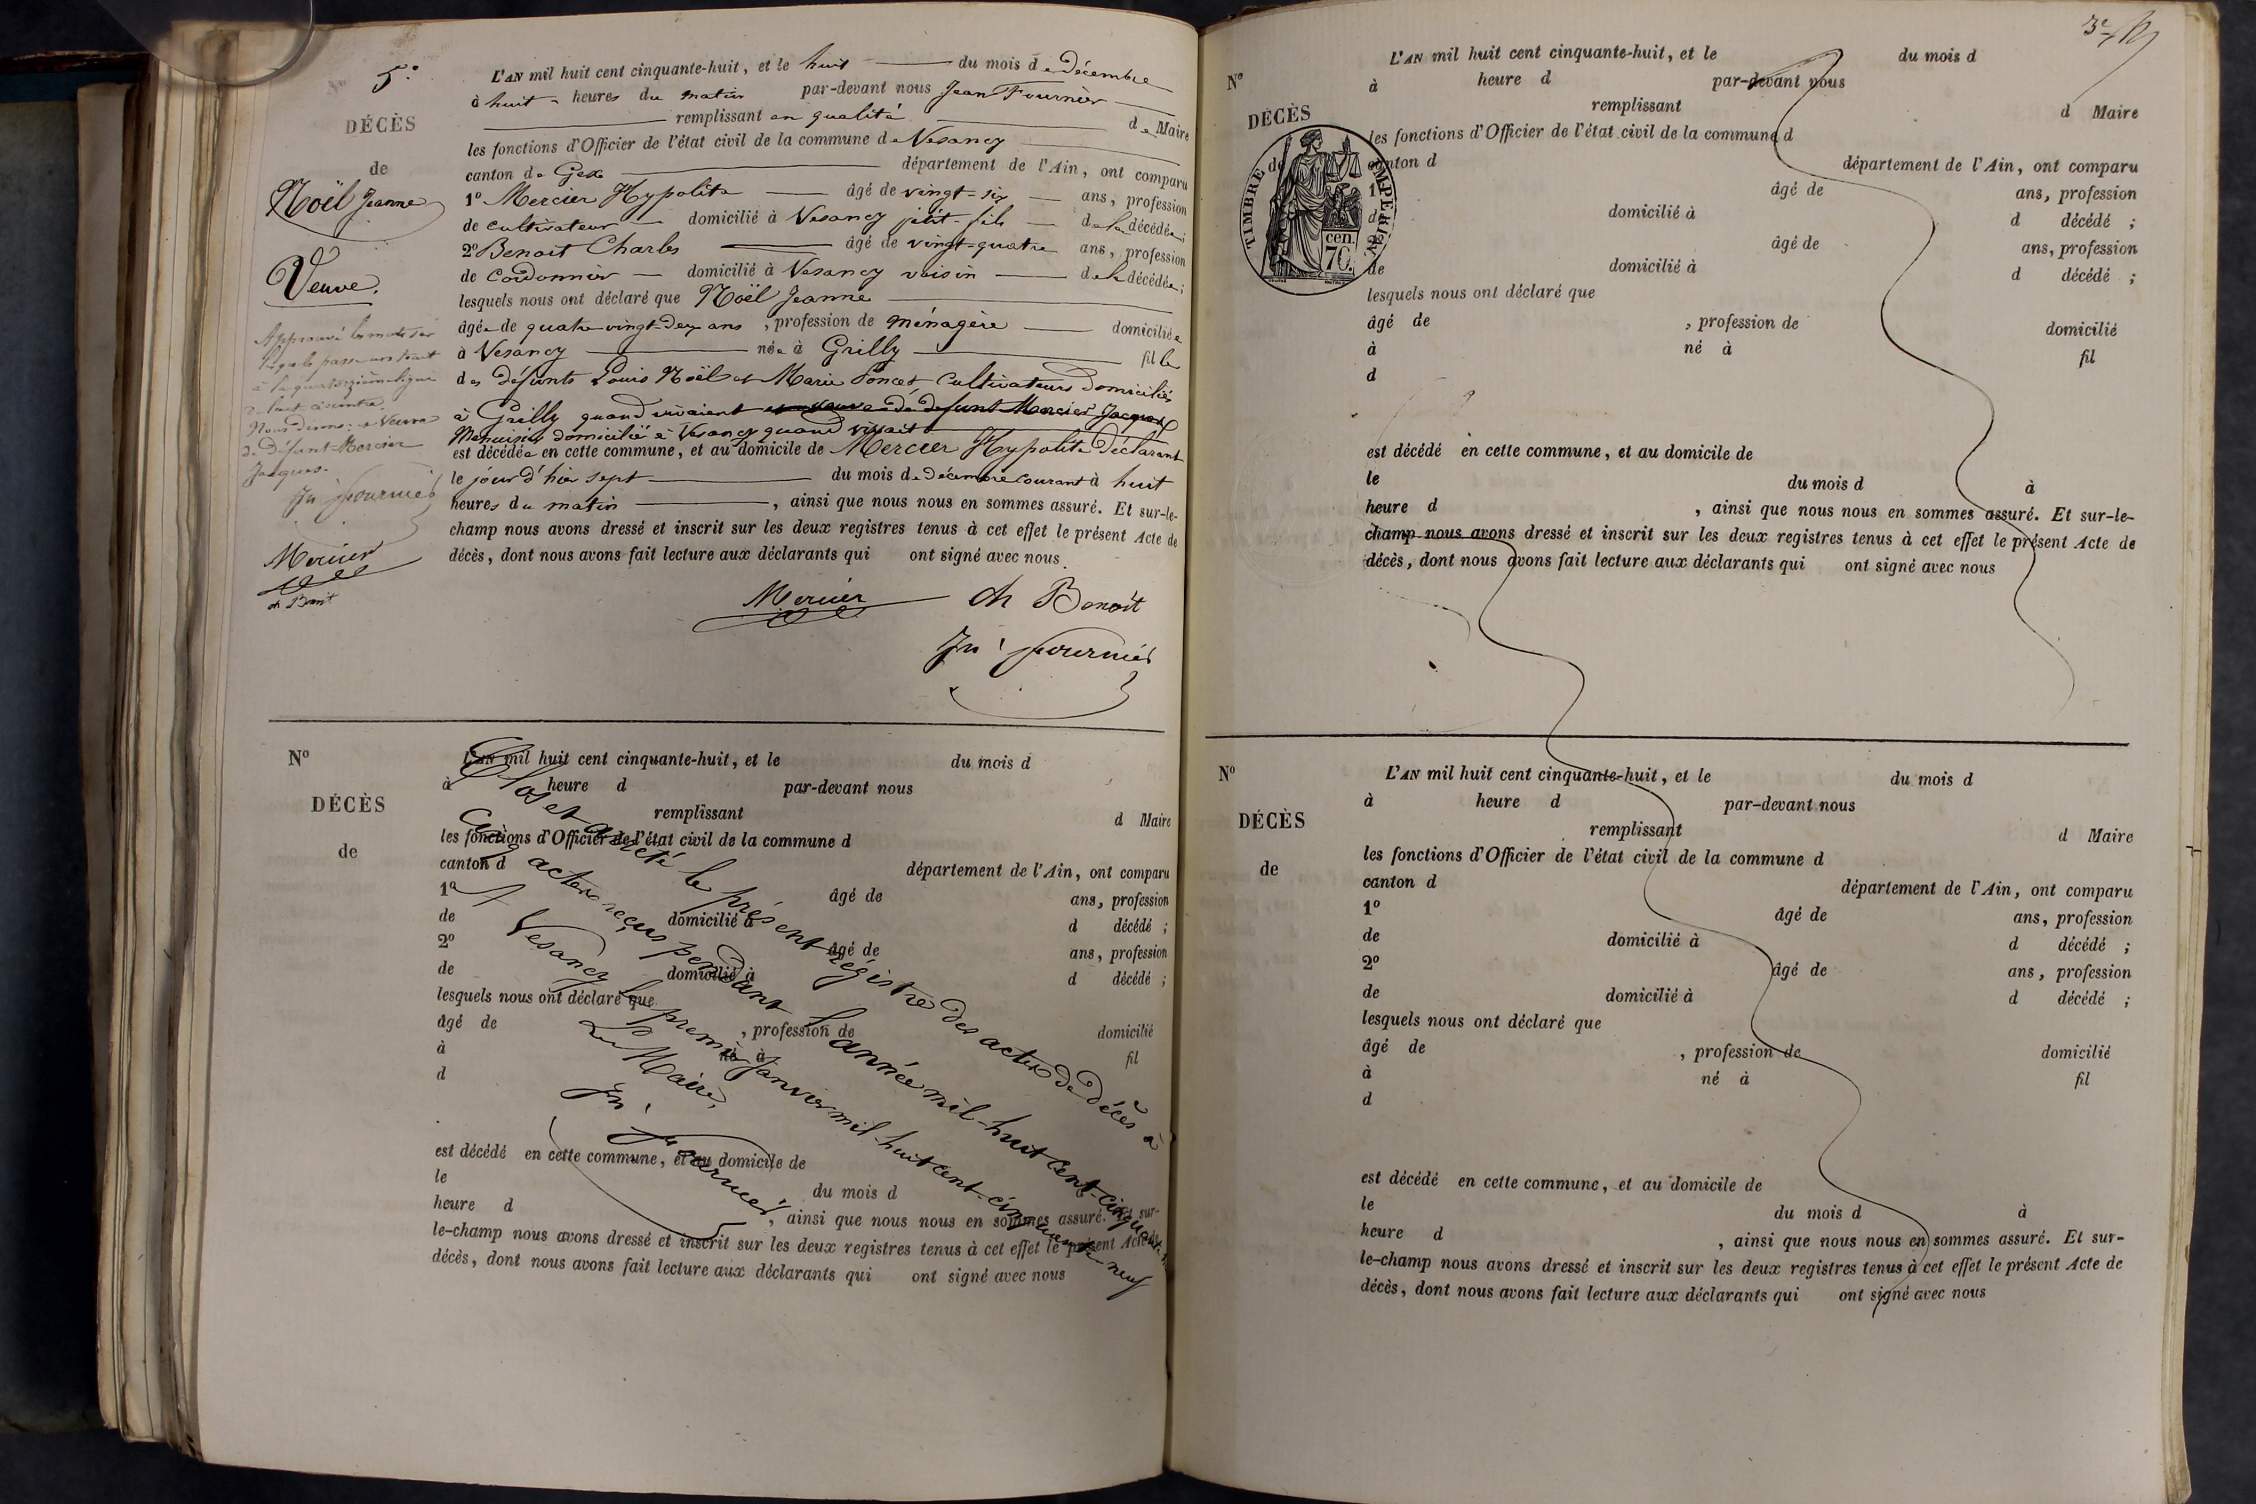 Nº 5º
DÉCÈS
de
Noël Jeanne
Veuve.
L'AN mil huit cent cinquante-huit, et le huit du mois de Décembre
à huit heures du matin par-devant nous Jean Fournier
remplissant en qualité de Maire
les fonctions d'Officier de l'état civil de la commune de Vesancy
canton de Gex département de l'Ain, ont comparu
1º Mercier Hypolite âgé de vingt-six ans, profession
de cultivateur domicilié à Vesancy petit-fils de la décédée;
2º Benoit Charles âgé de vingt-quatre ans, profession
de Cordonnier domicilié à Vesancy voisin de la décédée;
lesquels nous ont déclaré que Noël Jeanne
âgée de quatre vingt-deux ans, profession de Ménagère domiciliée
à Vesancy née à Grilly fille
des défunts Louis Noël et Marie Poncet, Cultivateurs domiciliés
à Grilly quand vivaient et veuve de défunt Mercier Jacques
Menuisier domicilié à Vesancy quand vivait
est décédée en cette commune, et au domicile de Mercier Hypolite Déclarant
le jour d'hier sept du mois de Décembre courant à huit
heures du matin, ainsi que nous nous en sommes assuré. Et sur-le-
champ nous avons dressé et inscrit sur les deux registres tenus à cet effet le présent Acte de
décès, dont nous avons fait lecture aux déclarants qui ont signé avec nous.
à la quatorzième ligne
Veuve
de défunt Mercier
Jacques.
Jn Fournier
Mercier
ch Benoit
Mercier ch Benoit
Jn Fournier
Nº
DÉCÈS
de
L'AN mil huit cent cinquante-huit, et le du mois d
à heure d par-devant nous
remplissant d Maire
les fonctions d'Officier de l'état civil de la commune d
canton d département de l'Ain, ont comparu
1º âgé de ans, profession
de domicilié à d décédé ;
2º âgé de ans, profession
de domicilié à d décédé ;
lesquels nous ont déclaré que
âgé de , profession de domicilié
à né à fil
d
est décédé en cette commune, et au domicile de
le du mois d
heure d , ainsi que nous nous en sommes assuré. Et sur-
le-champ nous avons dressé et inscrit sur les deux registres tenus à cet effet le présent Acte de
décès, dont nous avons fait lecture aux déclarants qui ont signé avec nous
Clos et arrêté le présent régistre des actes de décès à
actes reçus pendant l'année mil-huit cent-cinquante-huit
A Vesancy le premier Janvier mil-huit cent-cinquante-neuf
Le Maire,
Jn Fournier
3e
Nº
DÉCÈS
de
TIMBRE IMPÉRIAL
70 cen.
L'AN mil huit cent cinquante-huit, et le du mois d
à heure d par-devant nous
remplissant d Maire
les fonctions d'Officier de l'état civil de la commune d
canton d département de l'Ain, ont comparu
1º âgé de ans, profession
de domicilié à d décédé ;
âgé de ans, profession
de domicilié à d décédé ;
lesquels nous ont déclaré que
âgé de , profession de domicilié
à né à fil
d
est décédé en cette commune, et au domicile de
le du mois d à
heure d , ainsi que nous nous en sommes assuré. Et sur-le-
champ nous avons dressé et inscrit sur les deux registres tenus à cet effet le présent Acte de
décès, dont nous avons fait lecture aux déclarants qui ont signé avec nous
Nº
DÉCÈS
de
L'AN mil huit cent cinquante-huit, et le du mois d
à heure d par-devant nous
remplissant d Maire
les fonctions d'Officier de l'état civil de la commune d
canton d département de l'Ain, ont comparu
1º âgé de ans, profession
de domicilié à d décédé ;
2º âgé de ans, profession
de domicilié à d décédé ;
lesquels nous ont déclaré que
âgé de , profession de domicilié
à né à fil
d
est décédé en cette commune, et au domicile de
le du mois d à
heure d , ainsi que nous nous en sommes assuré. Et sur-
le-champ nous avons dressé et inscrit sur les deux registres tenus à cet effet le présent Acte de
décès, dont nous avons fait lecture aux déclarants qui ont signé avec nous